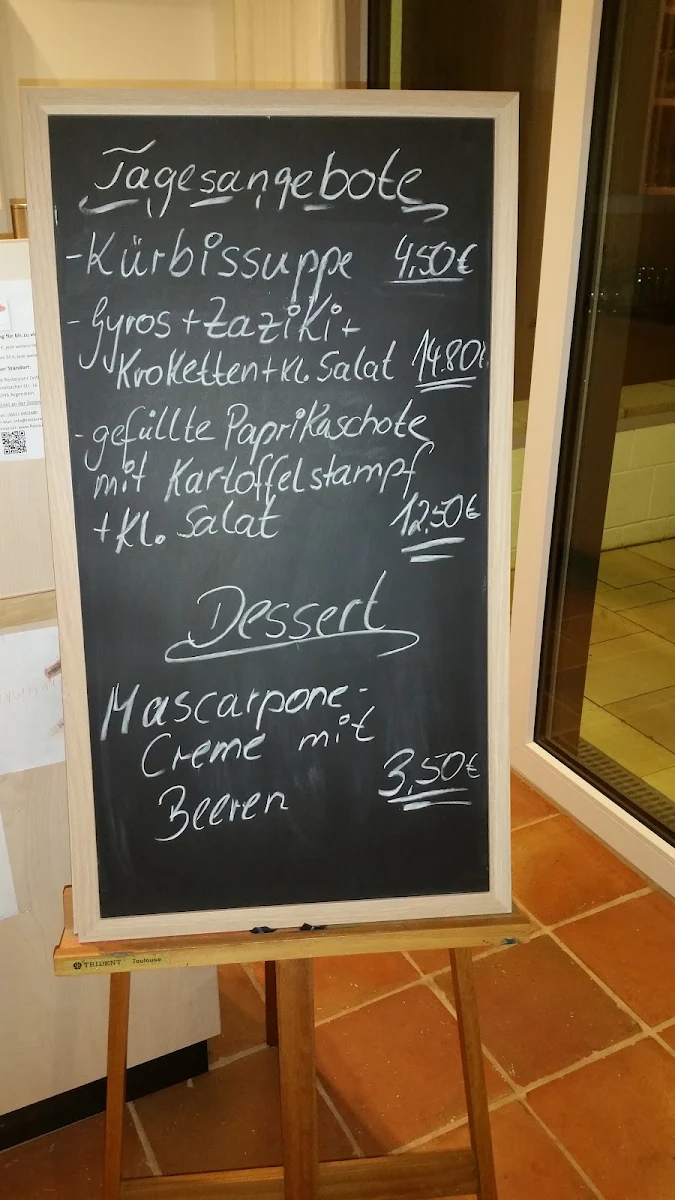 Tagesangebote
- Kürbissuppe 4,50€
- Gyros + Zaziki +
Kroketten + kl. Salat 14.80€
- gefüllte Paprikaschote
mit Kartoffelstampf
+ kl. Salat 12,50€
Dessert
Mascarpone-
Creme mit
Beeren 3,50€
TRIDENT Toulouse